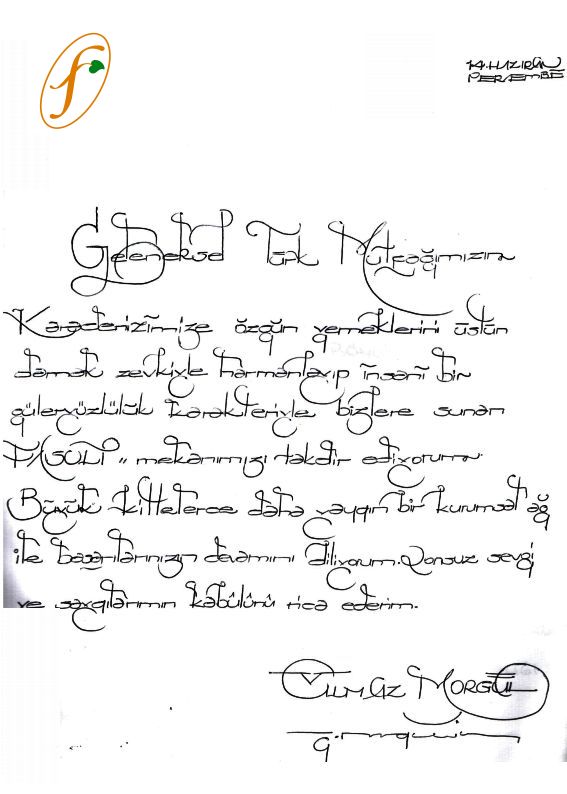 f
14. HAZİRAN
PERŞEMBE
Geleneksel Türk Mutfağımızın
Karadenizimize özgün yemeklerini üstün
damak zevkiyle harmanlayıp insani bir
güleryüzlülük karakteriyle bizlere sunan
FASULİ " mekanımızı takdir ediyorum.
Büyük kitlelerce daha yaygın bir kurumsal ağ
ile başarılarınızın devamını diliyorum. Sonsuz sevgi
ve saygılarımın kabûlünü rica ederim.
YILMAZ MORGÜL